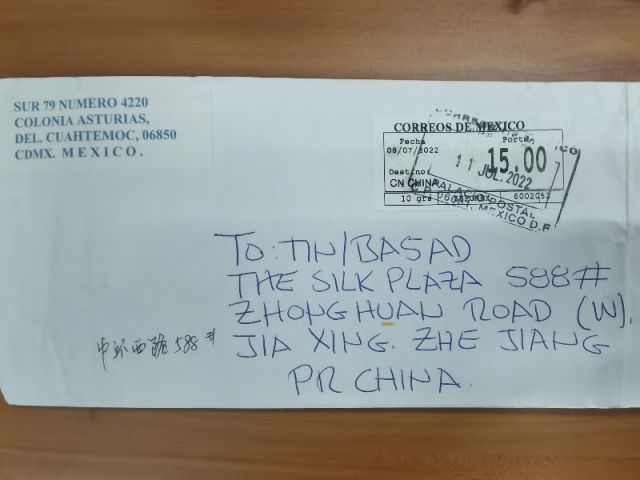 SUR 79 NUMERO 4220
COLONIA ASTURIAS,
DEL. CUAHTEMOC, 06850
CDMX. MEXICO.
CORREOS DE MEXICO
Fecha Porte
08/07/2022 15.00
11 JUL. 2022
Destino:
CN CHINA
PALACIO POSTAL
10 grs 6002052
MEXICO D.F
TO: TIN/BASAD
THE SILK PLAZA 588#
ZHONGHUAN ROAD (W).
中环西路 588#
JIA XING. ZHE JIANG
PR CHINA.